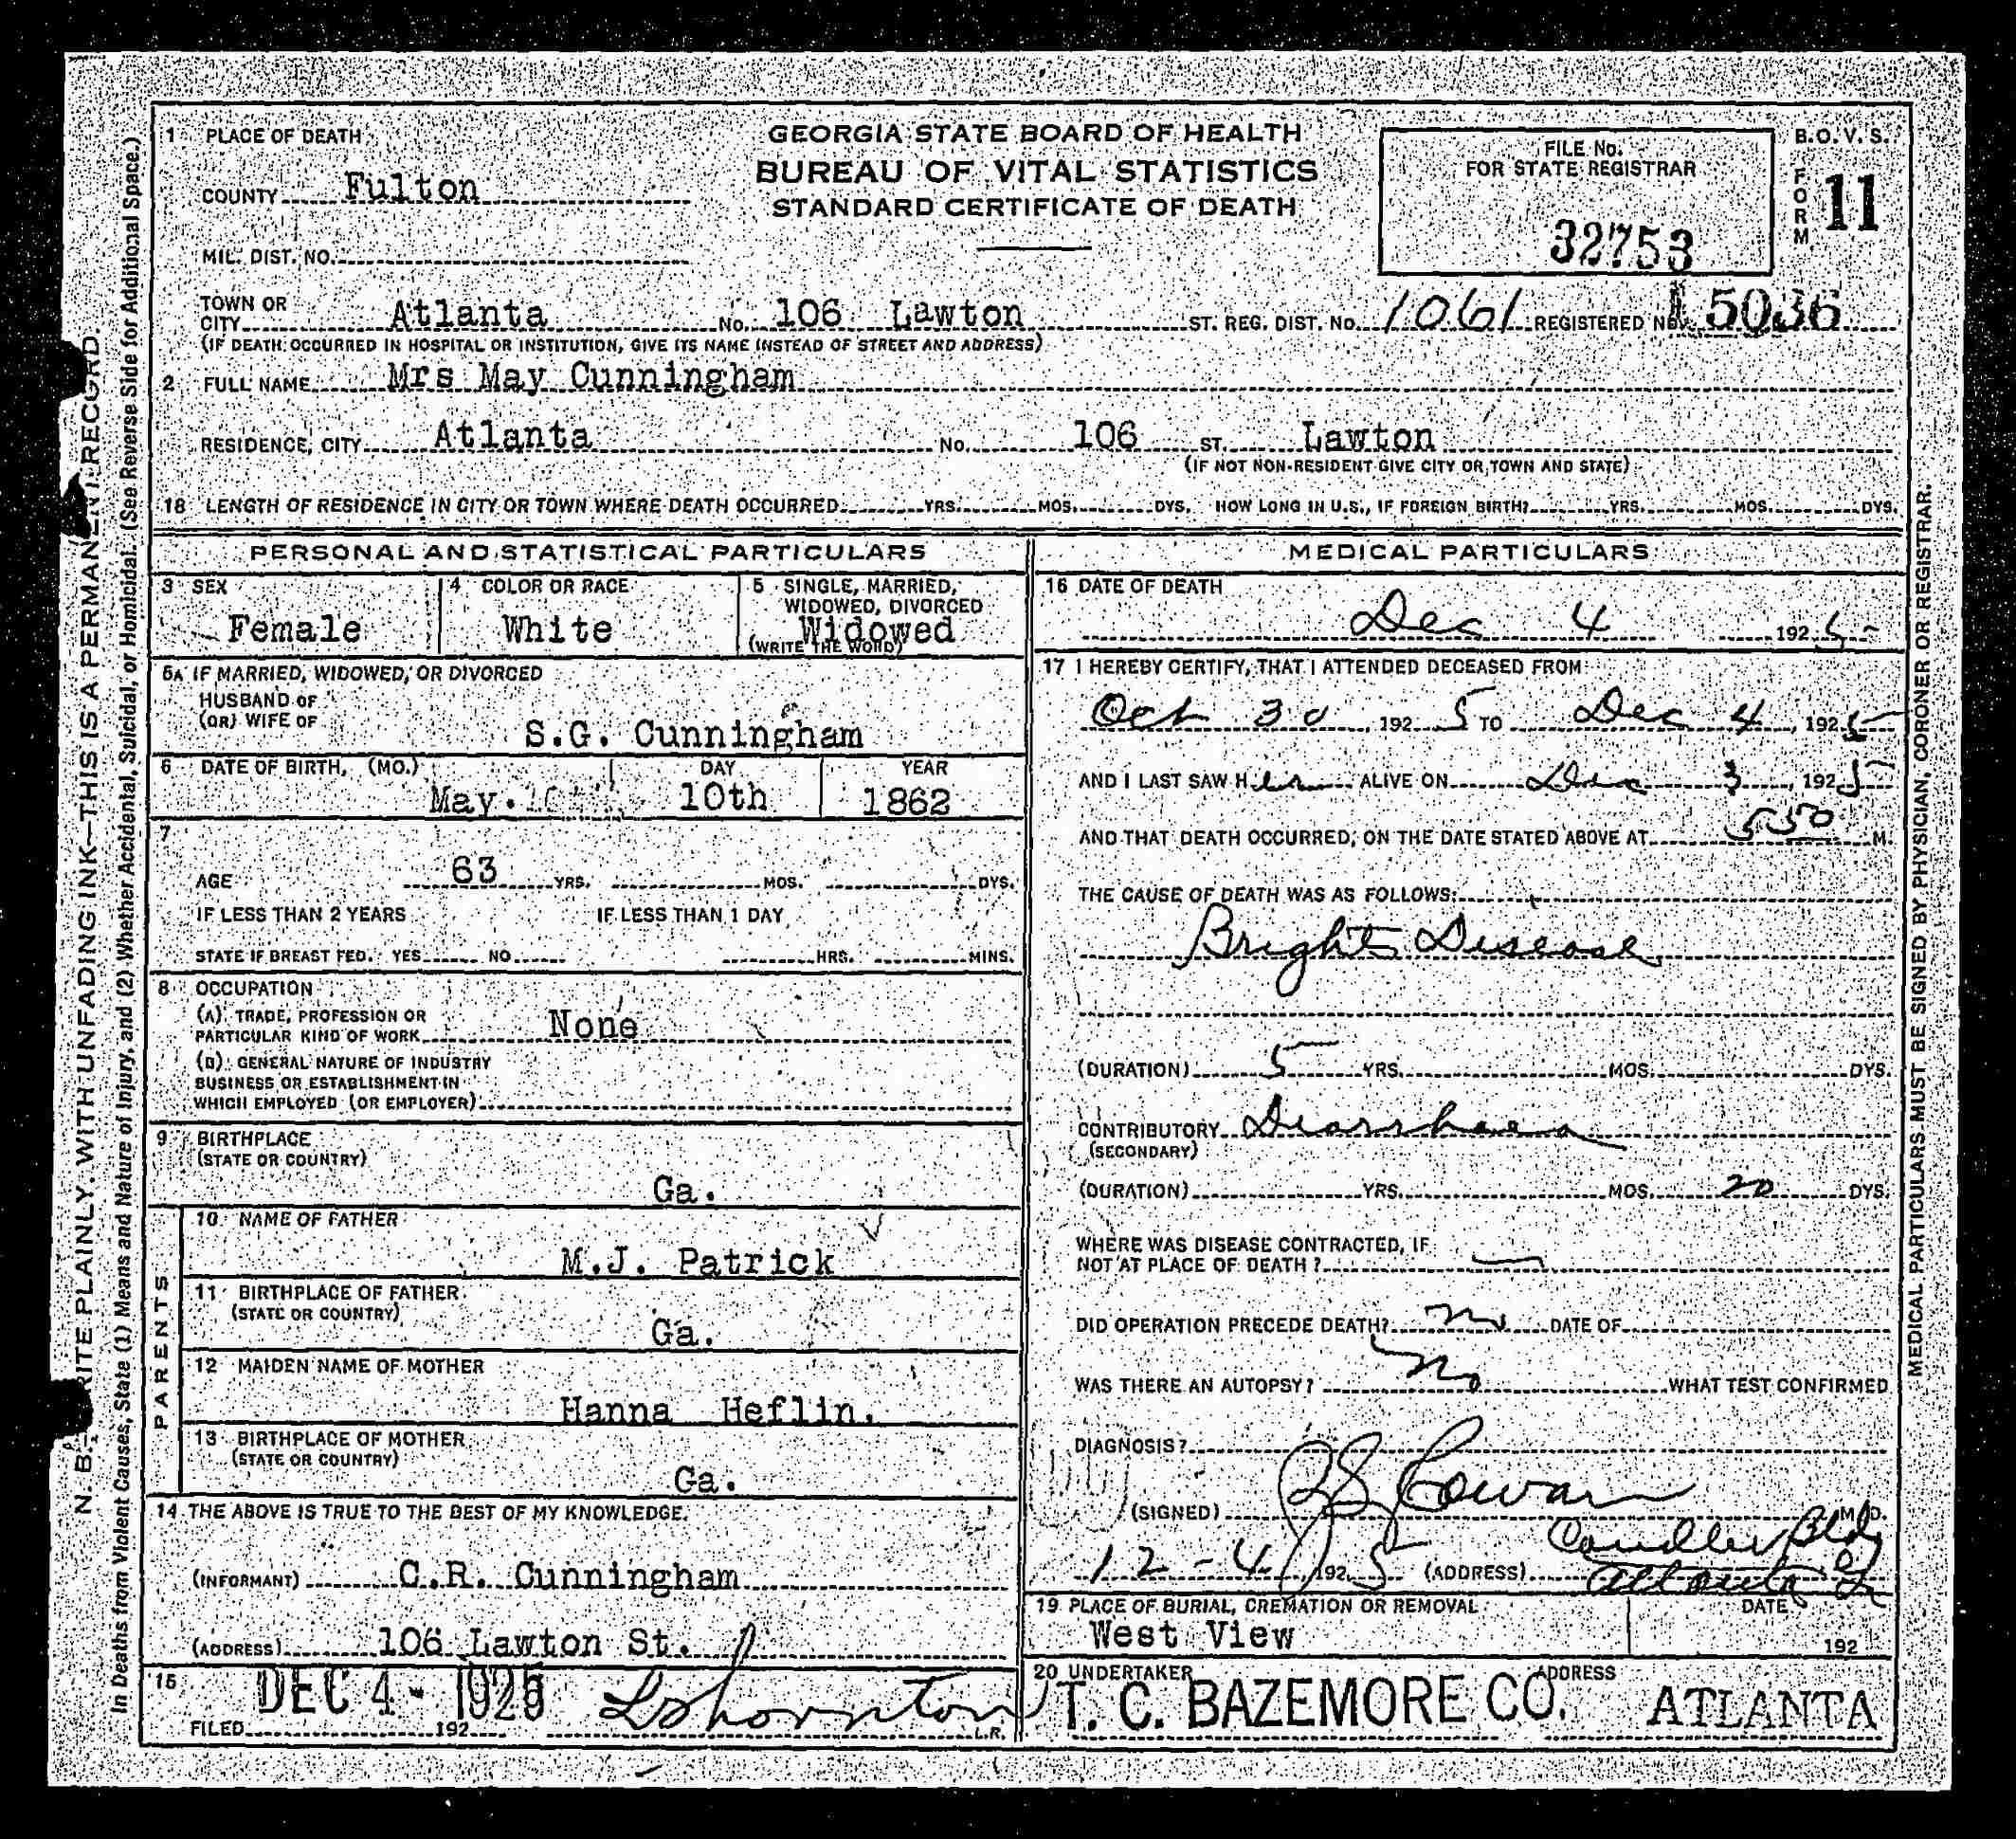 1 PLACE OF DEATH
GEORGIA STATE BOARD OF HEALTH
BUREAU OF VITAL STATISTICS
STANDARD CERTIFICATE OF DEATH
FILE No.
FOR STATE REGISTRAR
32753
B.O.V.S.
FORM 11
COUNTY Fulton
MIL. DIST. NO.
TOWN OR
CITY Atlanta No. 106 Lawton ST. REG. DIST. No. 1061 REGISTERED No. 5036
(IF DEATH OCCURRED IN HOSPITAL OR INSTITUTION, GIVE ITS NAME INSTEAD OF STREET AND ADDRESS)
2 FULL NAME Mrs May Cunningham
RESIDENCE, CITY Atlanta No. 106 ST. Lawton
(IF NOT NON-RESIDENT GIVE CITY OR TOWN AND STATE)
18 LENGTH OF RESIDENCE IN CITY OR TOWN WHERE DEATH OCCURRED YRS. MOS. DYS. HOW LONG IN U.S., IF FOREIGN BIRTH? YRS. MOS. DYS.
PERSONAL AND STATISTICAL PARTICULARS
3 SEX
Female
4 COLOR OR RACE
White
5 SINGLE, MARRIED,
WIDOWED, DIVORCED
Widowed
(WRITE THE WORD)
5A IF MARRIED, WIDOWED, OR DIVORCED
HUSBAND OF
(OR) WIFE OF
S.G. Cunningham
6 DATE OF BIRTH, (MO.) DAY YEAR
May. 10th 1862
7
AGE 63 YRS. MOS. DYS.
IF LESS THAN 2 YEARS IF LESS THAN 1 DAY
STATE IF BREAST FED. YES NO HRS. MINS.
8 OCCUPATION
(A) TRADE, PROFESSION OR
PARTICULAR KIND OF WORK None
(B) GENERAL NATURE OF INDUSTRY
BUSINESS OR ESTABLISHMENT IN
WHICH EMPLOYED (OR EMPLOYER)
9 BIRTHPLACE
(STATE OR COUNTRY)
Ga.
PARENTS
10 NAME OF FATHER
M.J. Patrick
11 BIRTHPLACE OF FATHER
(STATE OR COUNTRY)
Ga.
12 MAIDEN NAME OF MOTHER
Hanna Heflin.
13 BIRTHPLACE OF MOTHER
(STATE OR COUNTRY)
Ga.
14 THE ABOVE IS TRUE TO THE BEST OF MY KNOWLEDGE.
(INFORMANT) C.R. Cunningham
(ADDRESS) 106 Lawton St.
15 DEC 4 - 1925 Thornton
FILED 192 L.R.
MEDICAL PARTICULARS
16 DATE OF DEATH
Dec 4 1925
17 I HEREBY CERTIFY, THAT I ATTENDED DECEASED FROM
Oct 30, 1925 TO Dec 4, 1925
AND I LAST SAW Her ALIVE ON Dec 3, 1925
AND THAT DEATH OCCURRED, ON THE DATE STATED ABOVE AT 550 M.
THE CAUSE OF DEATH WAS AS FOLLOWS:
Brights Disease
(DURATION) 5 YRS. MOS. DYS.
CONTRIBUTORY Diarrhaea
(SECONDARY)
(DURATION) YRS. MOS. 20 DYS.
WHERE WAS DISEASE CONTRACTED, IF
NOT AT PLACE OF DEATH?
DID OPERATION PRECEDE DEATH? no DATE OF
WAS THERE AN AUTOPSY? no WHAT TEST CONFIRMED
DIAGNOSIS?
(SIGNED) Cowan M.D.
12-4, 1925 (ADDRESS) Candler Bldg
Atlanta Ga
19 PLACE OF BURIAL, CREMATION OR REMOVAL DATE
West View 192
20 UNDERTAKER ADDRESS
T. C. BAZEMORE CO. ATLANTA
N. B.—WRITE PLAINLY, WITH UNFADING INK—THIS IS A PERMANENT RECORD.
In Deaths from Violent Causes, State (1) Means and Nature of Injury, and (2) Whether Accidental, Suicidal, or Homicidal. (See Reverse Side for Additional Space.)
MEDICAL PARTICULARS MUST BE SIGNED BY PHYSICIAN, CORONER OR REGISTRAR.